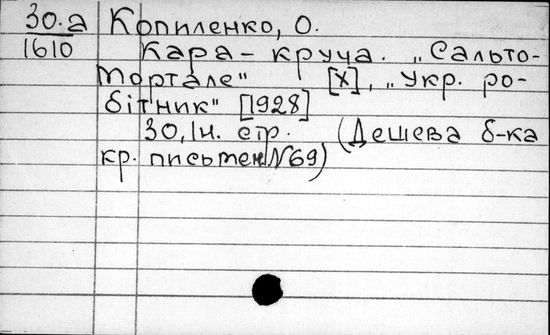 30.а Копиленко, О.
1610 Кара-круча. „Сальто-
мортале" [Х], „Укр. ро-
бітник" [1928]
30, Iн. стр. (Дешева б-ка
кр. письмен №69)